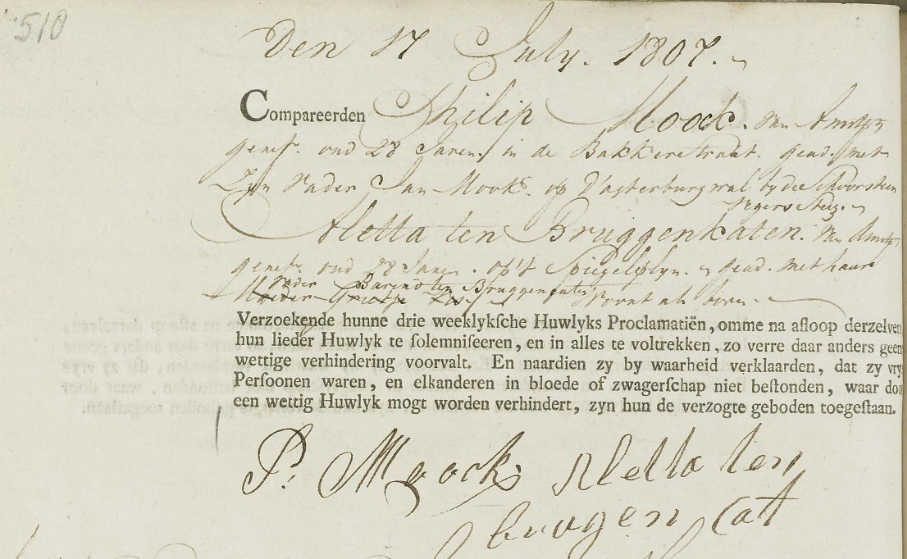 510
Den 17 July. 1807.
Compareerden Philip Moock. van Amst
geref. oud 28 Jaren. in de Bakkerstraat. geads. met
Zyn Vader Jan Mook. op d'agterburgwal by de Schoorsteen
vegers Steeg.
Aletta ten Bruggenkaten. van Amst
geref. oud 28 Jaren. op't Spiegelplyn. geads. met haar
Vader Barend ten Bruggencaten
Moeder Grietje woont als boven.
Verzoekende hunne drie weeklyksche Huwlyks Proclamatiën, omme na afloop derzelver
hun lieder Huwlyk te solemniseeren, en in alles te voltrekken, zo verre daar anders geen
wettige verhindering voorvalt. En naardien zy by waarheid verklaarden, dat zy vry
Persoonen waren, en elkanderen in bloede of zwagerschap niet bestonden, waar doo
een wettig Huwlyk mogt worden verhindert, zyn hun de verzogte geboden toegestaan.
P. Moock Aletta ten
brugen Cat